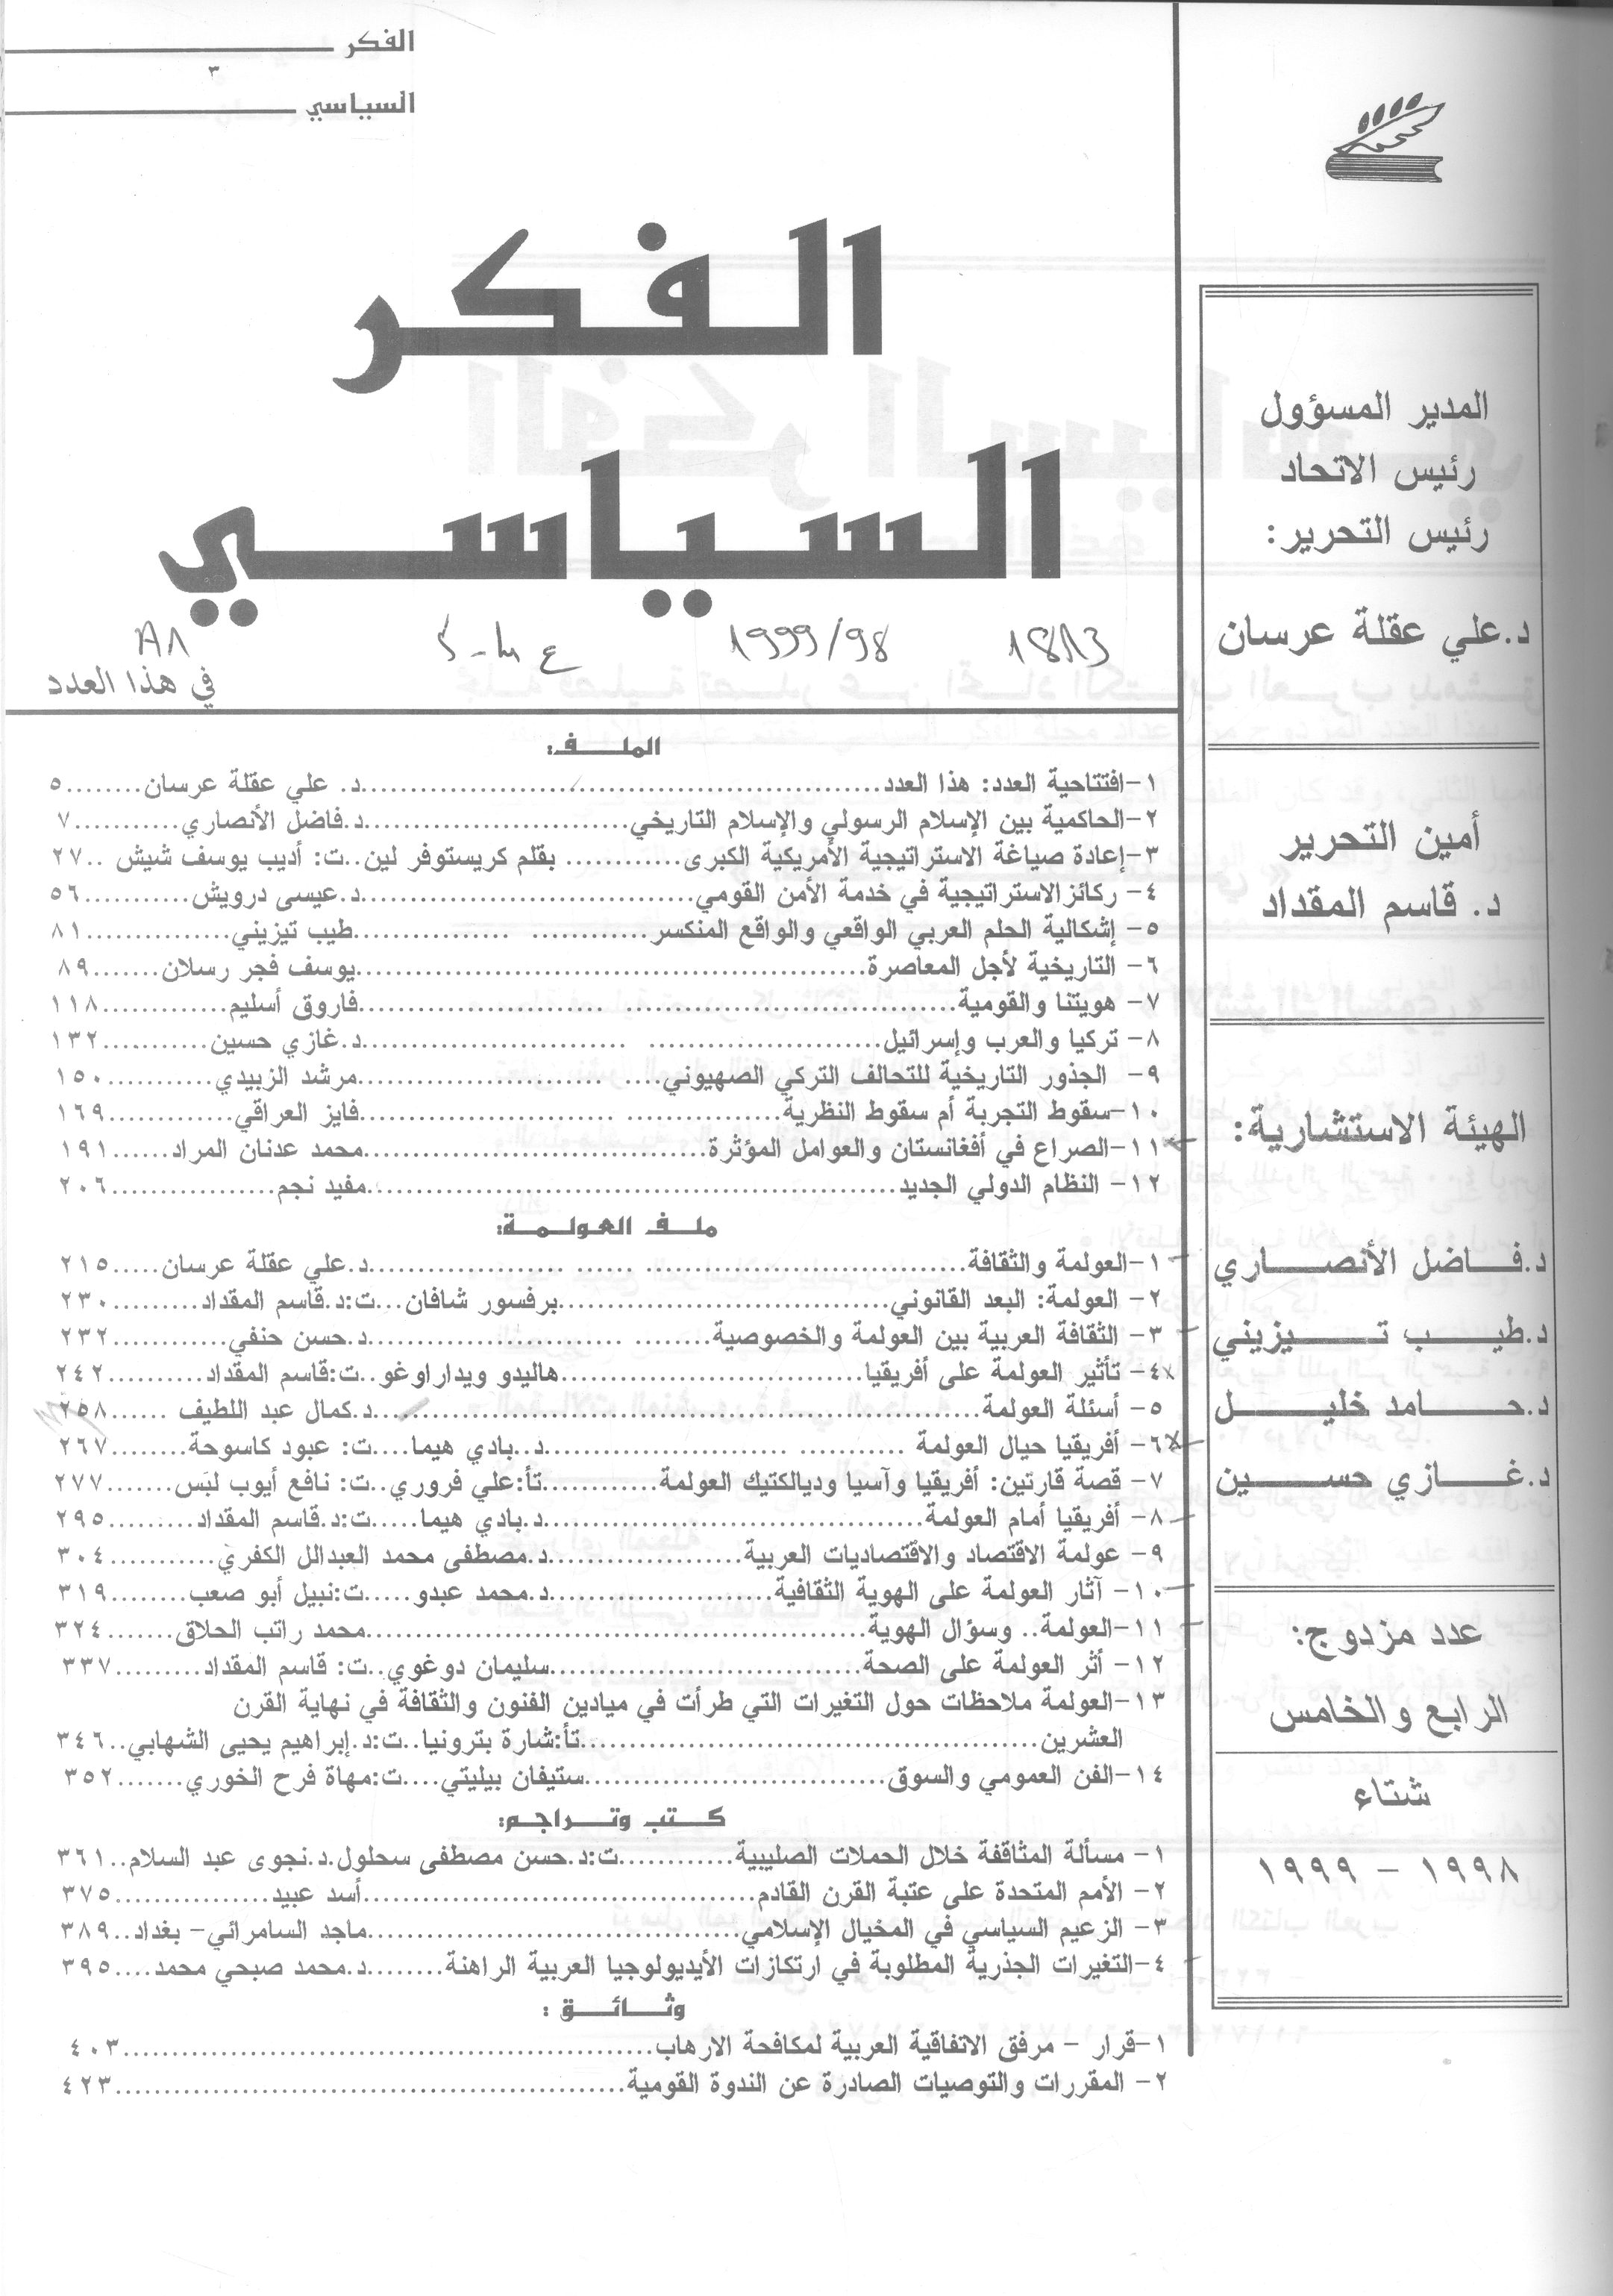 الفكر
٣
السياسي
الفكر
السياسي
1999/98
في هذا العدد
المدير المسؤول
رئيس الاتحاد
رئيس التحرير:
د.علي عقلة عرسان
أمين التحرير
د. قاسم المقداد
الهيئة الاستشارية:
د.فاضل الأنصاري
د.طيب تيزيني
د.حامد خليل
د.غازي حسين
عدد مزدوج:
الرابع والخامس
شتاء
١٩٩٨ – ١٩٩٩
الملف:
١-افتتاحية العدد: هذا العدد......د. علي عقلة عرسان........٥
٢-الحاكمية بين الإسلام الرسولي والإسلام التاريخي......د.فاضل الأنصاري...........٧
٣-إعادة صياغة الاستراتيجية الأمريكية الكبرى............ بقلم كريستوفر لين..ت: أديب يوسف شيش ..٢٧
٤- ركائزالاستراتيجية في خدمة الأمن القومي......د.عيسى درويش............٥٦
٥- إشكالية الحلم العربي الواقعي والواقع المنكسر......طيب تيزيني...............٨١
٦- التاريخية لأجل المعاصرة......يوسف فجر رسلان.......٨٩
٧- هويتنا والقومية......فاروق أسليم............١١٨
٨- تركيا والعرب وإسرائيل......د.غازي حسين...........١٣٢
٩- الجذور التاريخية للتحالف التركي الصهيوني......مرشد الزبيدي...........١٥٠
١٠-سقوط التجربة أم سقوط النظرية......فايز العراقي............١٦٩
١١-الصراع في أفغانستان والعوامل المؤثرة......محمد عدنان المراد......١٩١
١٢- النظام الدولي الجديد......مفيد نجم................٢٠٦
ملف العولمة:
١-العولمة والثقافة......د.علي عقلة عرسان.....٢١٥
٢- العولمة: البعد القانوني......برفسور شافان...ت:د.قاسم المقداد..........٢٣٠
٣- الثقافة العربية بين العولمة والخصوصية......د.حسن حنفي............٢٣٢
٤- تأثير العولمة على أفريقيا......هاليدو ويداراوغو..ت:قاسم المقداد...........٢٤٢
٥- أسئلة العولمة......د.كمال عبد اللطيف ......٢٥٨
٦- أفريقيا حيال العولمة ......د..بادي هيما....ت: عبود كاسوحة........٢٦٧
٧- قصة قارتين: أفريقيا وآسيا وديالكتيك العولمة............تأ:علي فروري..ت: نافع أيوب لبَس.......٢٧٧
٨- أفريقيا أمام العولمة......د.بادي هيما.....ت:د.قاسم المقداد..........٢٩٥
٩- عولمة الاقتصاد والاقتصاديات العربية......د.مصطفى محمد العبدالل الكفري...........٣٠٤
١٠- آثار العولمة على الهوية الثقافية......د.محمد عبدو.....ت:نبيل أبو صعب........٣١٩
١١-العولمة.. وسؤال الهوية......محمد راتب الحلاق.......٣٢٤
١٢- أثر العولمة على الصحة......سليمان دوغوي..ت: قاسم المقداد.........٣٣٧
١٣-العولمة ملاحظات حول التغيرات التي طرأت في ميادين الفنون والثقافة في نهاية القرن
العشرين......تأ:شارة بترونيا..ت:د.إبراهيم يحيى الشهابي..٣٤٦
١٤-الفن العمومي والسوق......ستيفان بيليتي....ت:مهاة فرح الخوري.......٣٥٢
كتب وتراجم:
١- مسألة المثاقفة خلال الحملات الصليبية............ت:د.حسن مصطفى سحلول.د.نجوى عبد السلام..٣٦١
٢- الأمم المتحدة على عتبة القرن القادم......أسد عبيد................٣٧٥
٣- الزعيم السياسي في المخيال الإسلامي......ماجد السامرائي- بغداد..٣٨٩
٤-التغيرات الجذرية المطلوبة في ارتكازات الأيديولوجيا العربية الراهنة........د.محمد صبحي محمد....٣٩٥
وثائق :
١-قرار - مرفق الاتفاقية العربية لمكافحة الارهاب......٤٠٣
٢- المقررات والتوصيات الصادرة عن الندوة القومية......٤٢٣